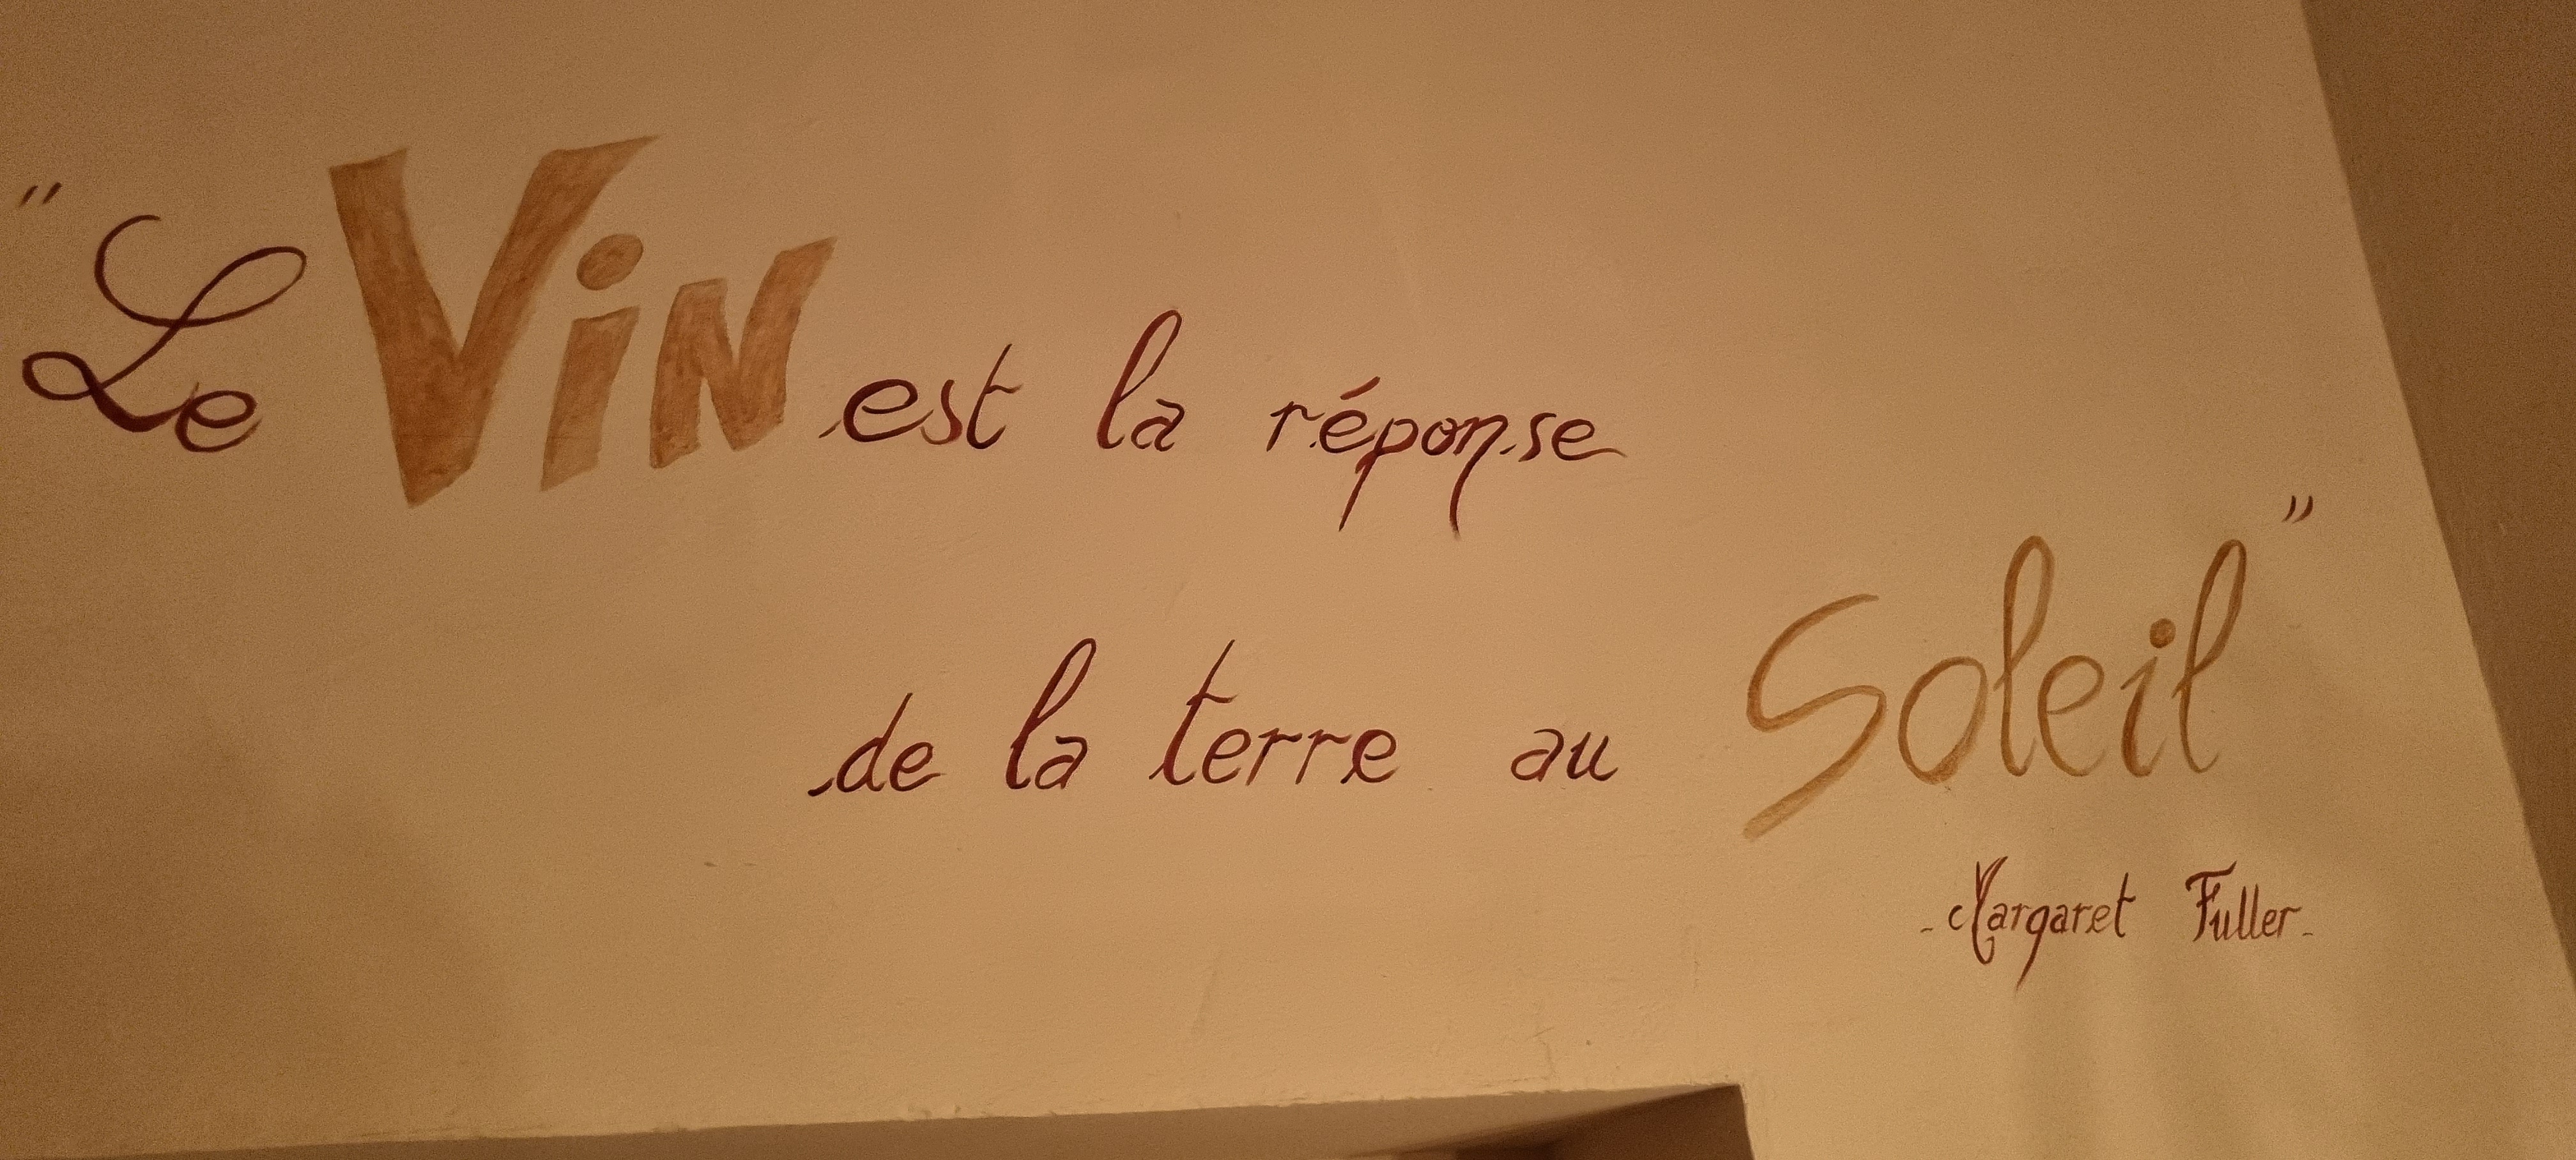 "Le Vin est la réponse
de la terre au Soleil"
- Margaret Fuller -